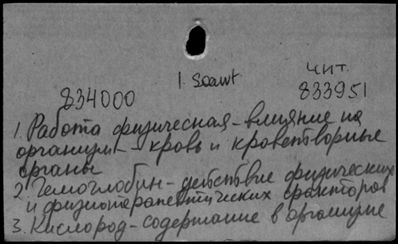 1. Soawt
чит.
834000
833951
1. Работа физическая - влияние на
организм - кровь и кроветворные
органы
2. Гемоглобин - действие физических
и физиотерапевтических факторов
3. Кислород - содержание в организме